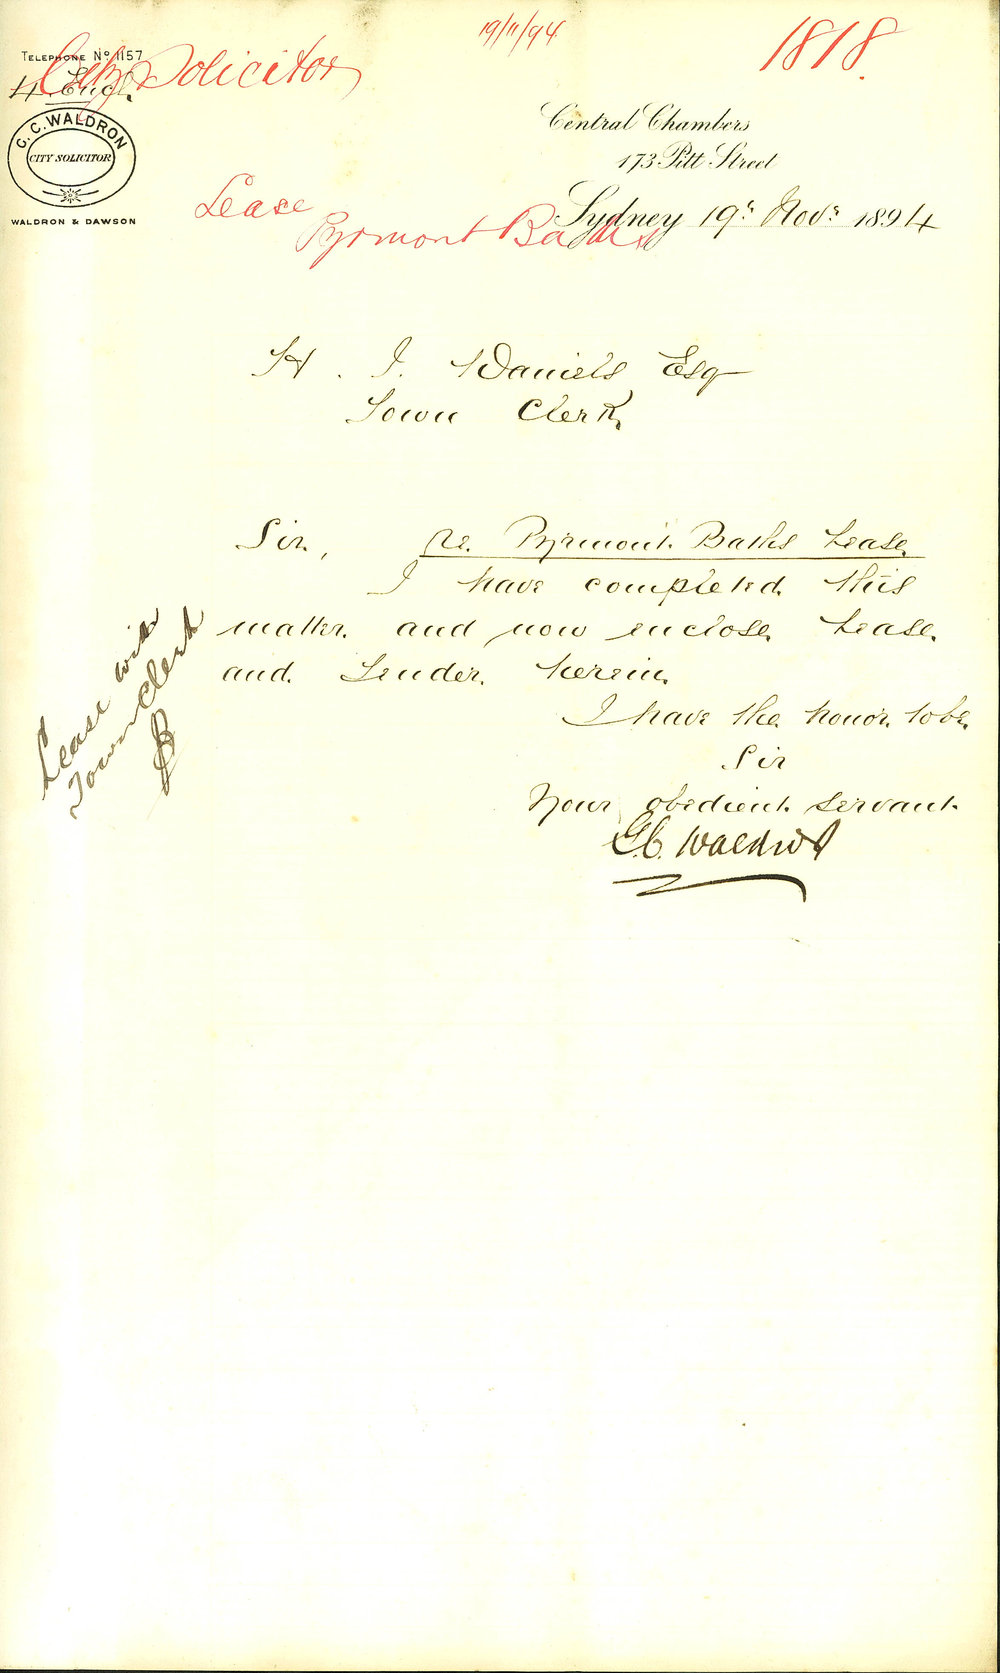 19/11/94
1818.
TELEPHONE No. 1157
City Solicitor
4 Encl.
G. C. WALDRON
CITY SOLICITOR
WALDRON & DAWSON
Central Chambers
173 Pitt Street
Sydney 19th Novr 1894
Lease
Pyrmont Baths
H. J. Daniels Esq
Town Clerk
Sir, re Pyrmont Baths Lease
I have completed this
matter and now enclose Lease
and Tender herein
I have the honor to be
Sir
Your obedient servant
G.C. Waldron
Lease with
Town Clerk